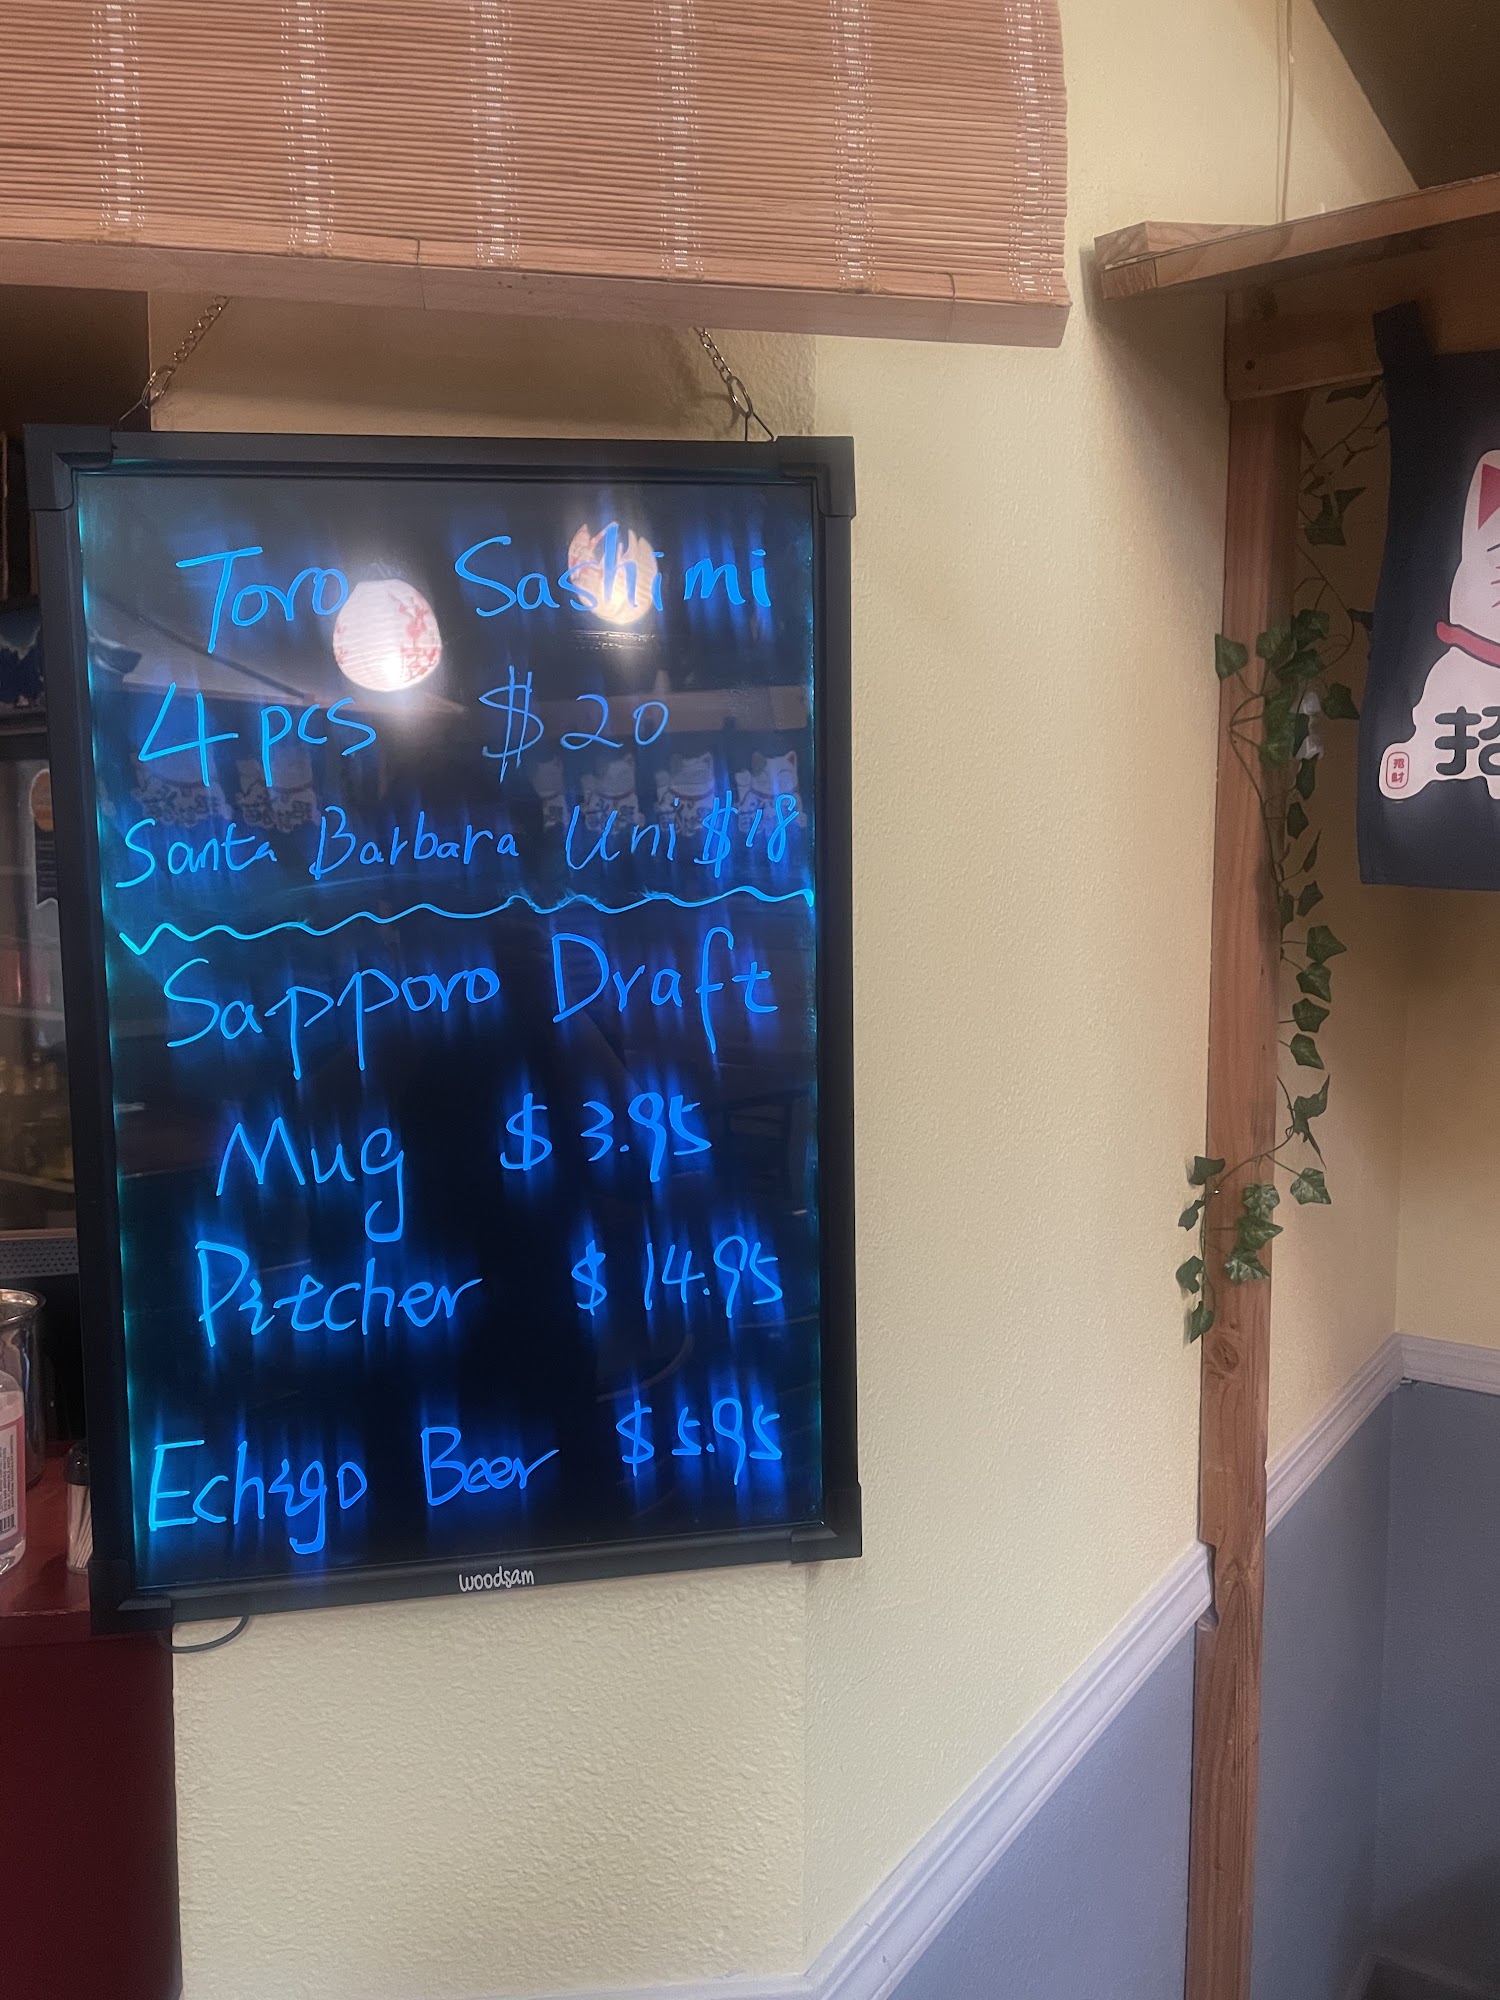 Toro Sashimi
4pcs $20
Santa Barbara Uni $18
Sapporo Draft
Mug $3.95
Pitcher $14.95
Echigo Beer $5.95
woodsam
招
招財